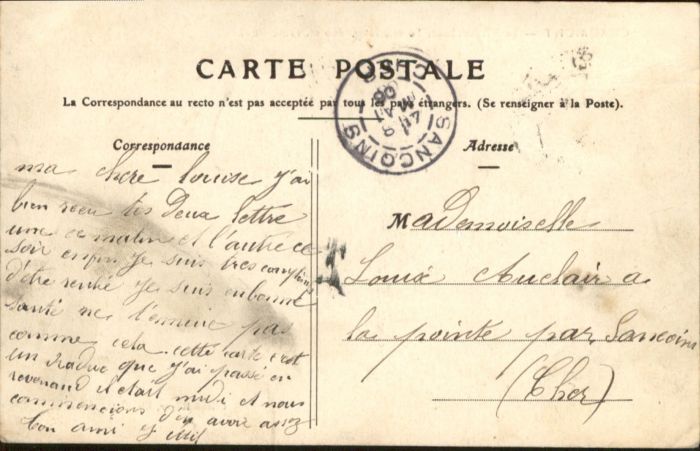 CARTE POSTALE
La Correspondance au recto n'est pas acceptée par tous les pays étrangers. (Se renseigner à la Poste).
SANCOINS
CHER
Correspondance
Adresse
ma chere louise J'ai
bien recu tes Deux lettre
une ce matin et l'autre ce
soir enfin Je suis tres
d'être rentré Je suis enbonne
santé ne t'ennuie pas
comme cela cette carte c'est
un viaduc que J'ai passé en
revenand il était midi et nous
commencions d'en avoir assez
ton ami
Mademoiselle
Auclair a
la pointe par Sancoins
(Cher)